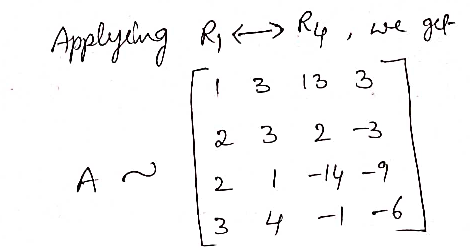 Applyeing R1 <-> R4, we get
1 3 13 3
2 3 2 -3
A ~
2 1 -14 -9
3 4 -1 -6